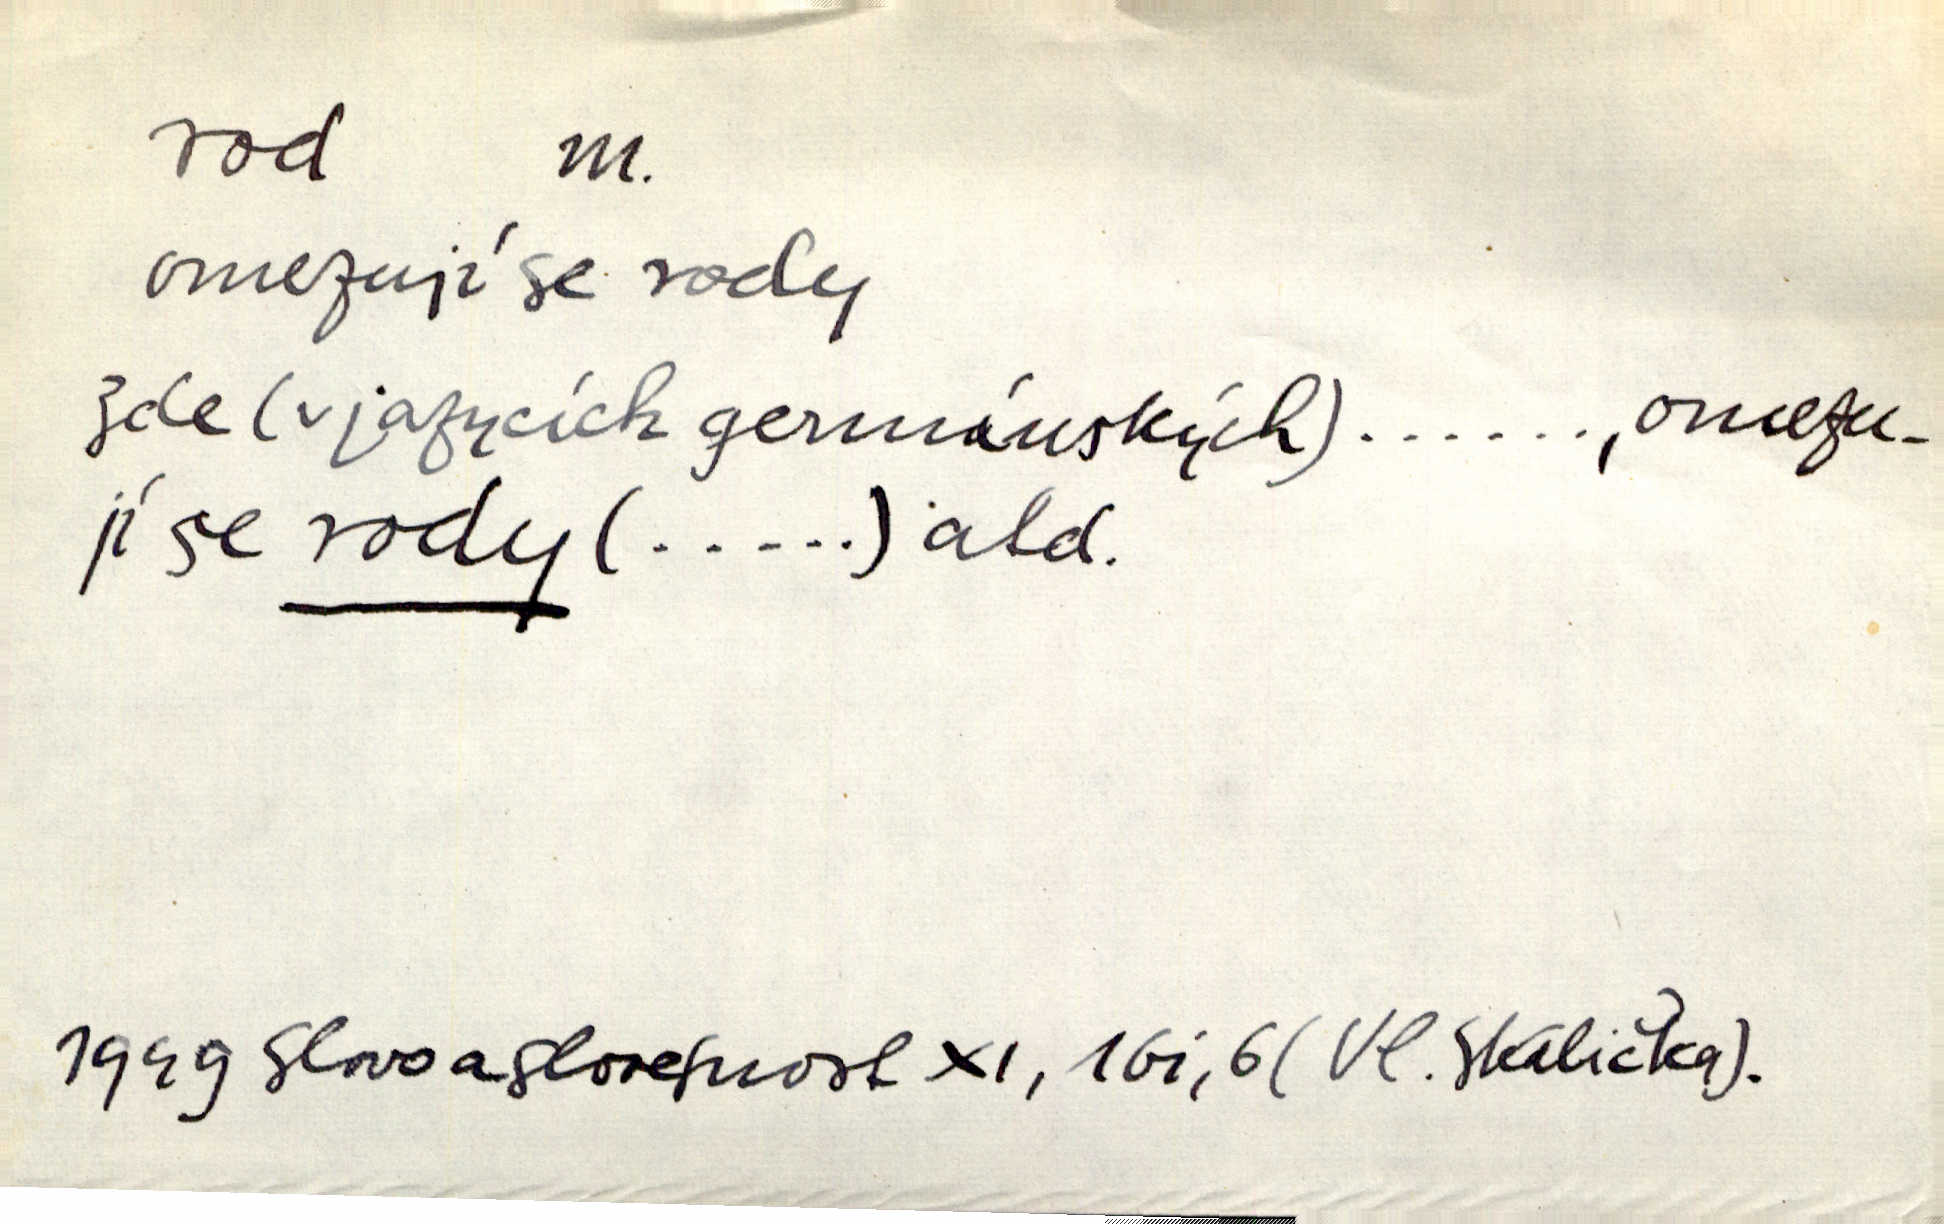 rod m.
omezují se rody
zde (v jazycích germánských) . . . . . . ., omezu-
jí se rody (. . . . . .) atd.
1949 Slovo a slovesnost XI, 161, 6 (Vl. Skalička).